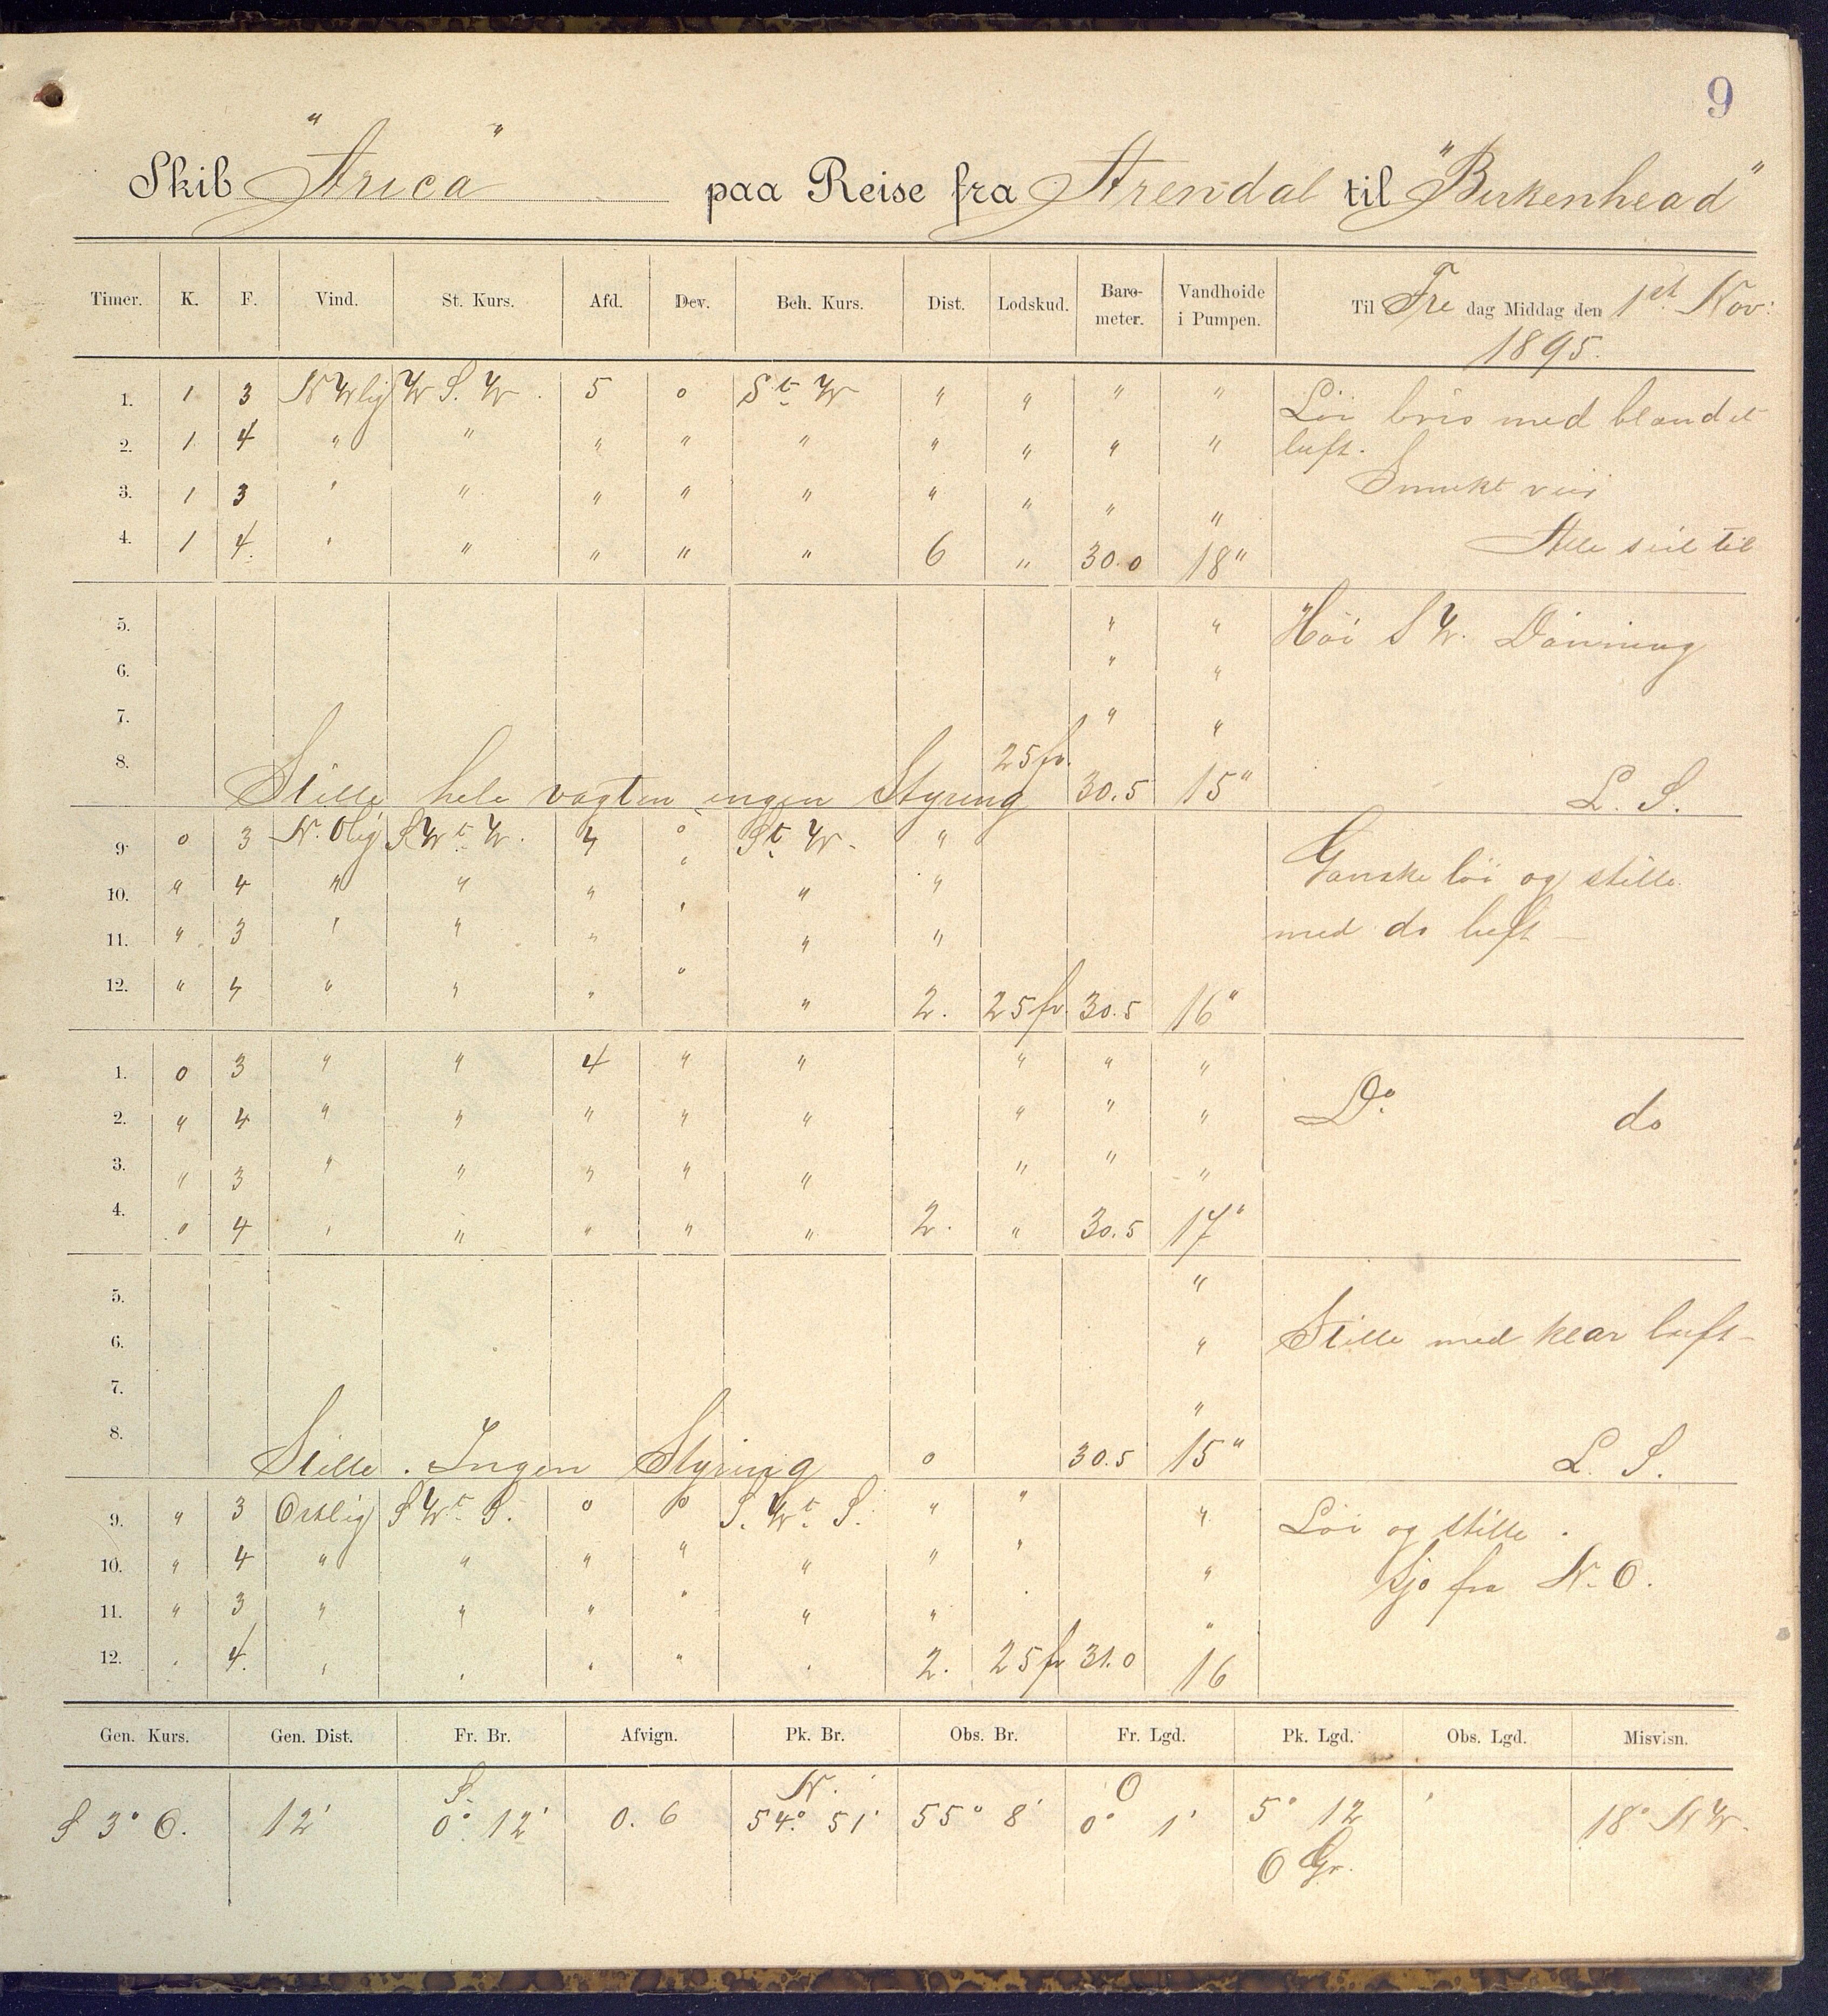 9
Skib "Arica" paa Reise fra Arendal til "Birkenhead"
Timer. K. F. Vind. St. Kurs. Afd. Dev. Beh. Kurs. Dist. Lodskud. Baro-meter. Vandhoide i Pumpen. Til Fredag Middag den 1st Nov: 1895.
1. 1 3 NWlig W S. W. 5 0 St W " " " " Löi bris med blandet
2. 1 4 " " " " " " " " " luft.
3. 1 3 " " " " " " " " " Smukt veir
4. 1 4. " " " " " 6 " 30.0 18" Alle seil til
5. " " Höi S W. Dönning
6. " "
7. " "
8. Stille hele vagten ingen Styring 25 fv. 30.5 15" L. S.
9. 0 3 N. Olig S W t W. 4 0 St W. "
10. " 4 " " " " " " Ganske löi og stille
11. " 3 " " " " " " med do luft —
12. " 4 " " " " " 2. 25 fv. 30.5 16"
1. 0 3 " " 4 " " " " "
2. " 4 " " " " " " " " Do do
3. " 3 " " " " " " " "
4. " 4 " " " " " 2. " 30.5 17"
5. "
6. " Stille med klar luft —
7. "
8. Stille. Ingen Styring 0 30.5 15" L. S.
9. " 3 Ostlig S W t S. 0 0 S. W t S. " " " Löi og stille.
10. " 4 " " " " " " " " Sjö fra N. O.
11. " 3 " " " " " " " "
12. " 4. " " " " " 2. 25 fv 31.0 16
Gen. Kurs. Gen. Dist. Fr. Br. Afvign. Pk. Br. Obs. Br. Fr. Lgd. Pk. Lgd. Obs. Lgd. Misvisn.
S. N. O
S 3° O. 12' 0° 12' 0. 6 54° 51' 55° 8' 0° 1' 5° 12 ' 18° N W.
O Gr.